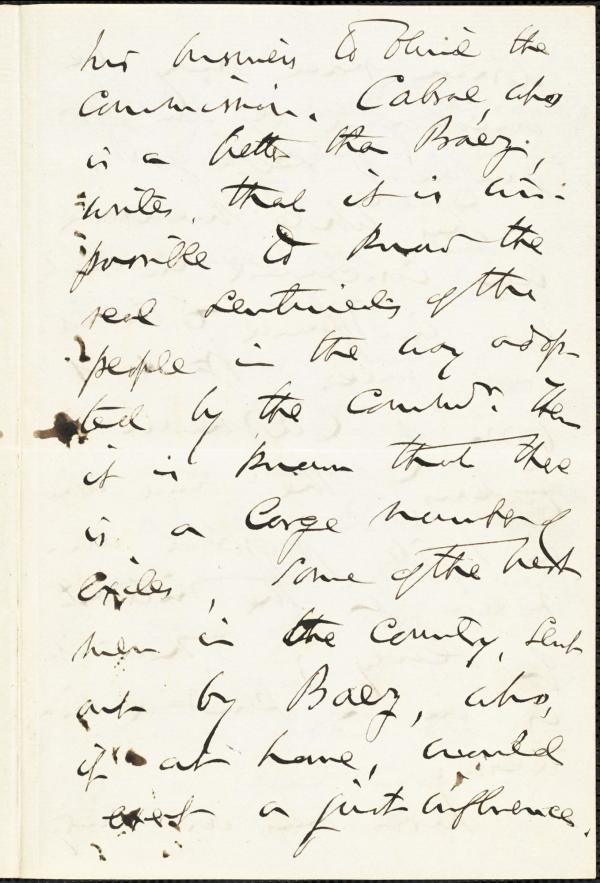 his business to blind the
Commission. Cabral, who
is a better than Báez,
writes, that it is im-
possible to know the
real sentiments of the
people in the way adop-
ted by the Commrs. Then
it is known that there
is a large number of
exiles, some of the best
men in the country, sent
out by Baez, who,
if at home, would
exert a just influence.